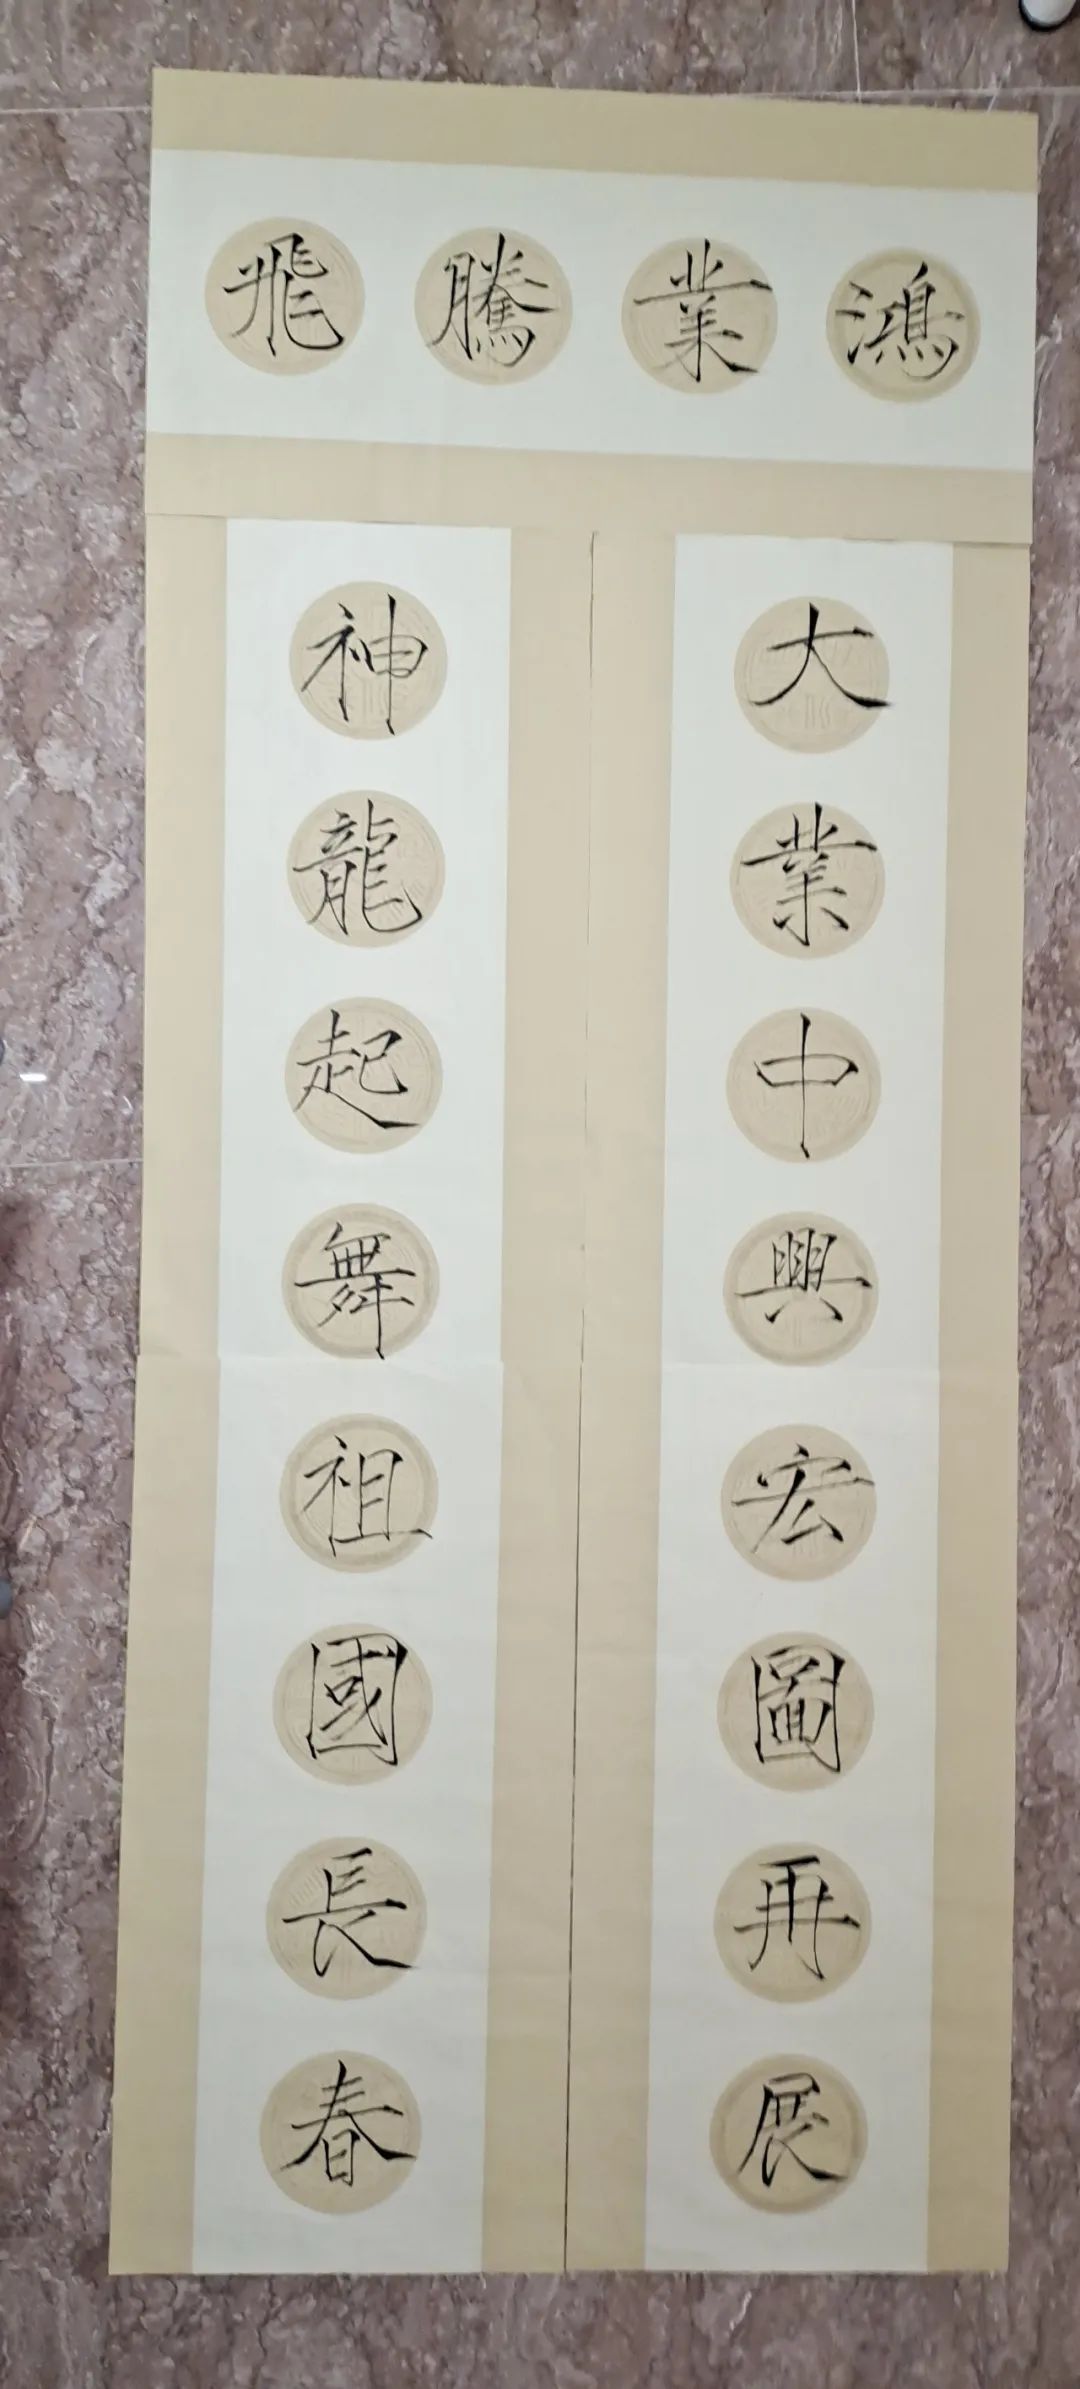 鴻業騰飛
大業中興宏圖再展
神龍起舞祖國長春